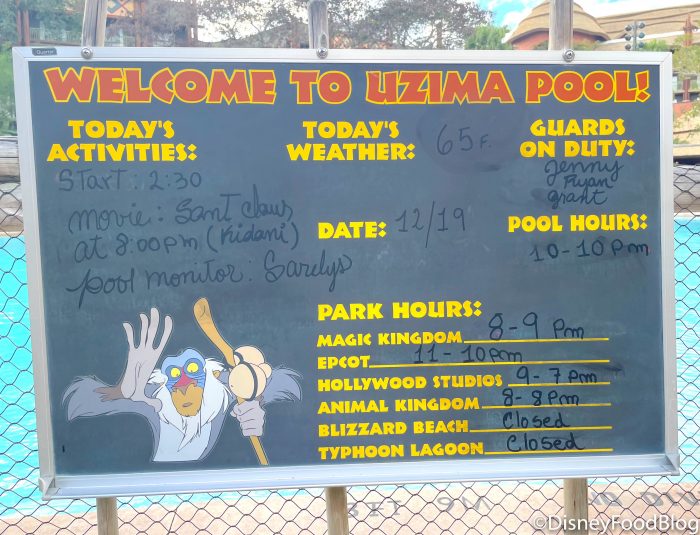 Quartet
WELCOME TO UZIMA POOL!
TODAY'S
ACTIVITIES:
Start: 2:30
movie: Sant Claus
at 8:00pm (Kidani)
pool monitor: Sarelys
TODAY'S
WEATHER: 65 F.
DATE: 12/19
GUARDS
ON DUTY:
Jenny
Ryan
grant
POOL HOURS:
10-10 pm
PARK HOURS:
MAGIC KINGDOM 8-9 pm
EPCOT 11-10pm
HOLLYWOOD STUDIOS 9-7 pm
ANIMAL KINGDOM 8-8pm
BLIZZARD BEACH Closed
TYPHOON LAGOON Closed
©DisneyFoodBlog